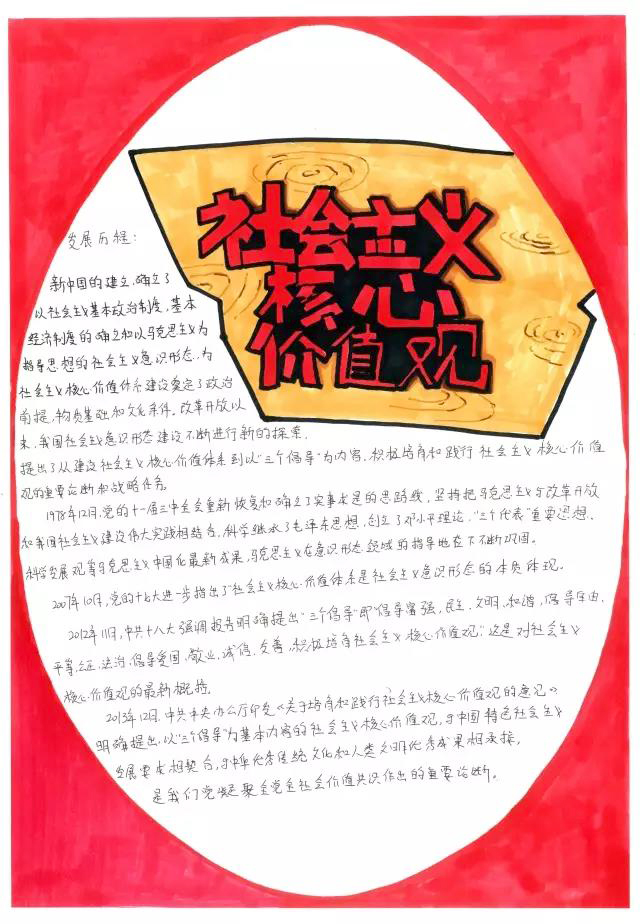 社会主义
核心
价值观
发展历程:
新中国的建立,确立了
以社会主义基本政治制度,基本
经济制度的确立和以马克思主义为
指导思想的社会主义意识形态,为
社会主义核心价值体系建设奠定了政治
前提,物质基础和文化条件。改革开放以
来,我国社会主义意识形态建设不断进行新的探索,
提出了从建设社会主义核心价值体系到以"三个倡导"为内容,积极培育和践行社会主义核心价值
观的重要论断和战略任务。
1978年12月,党的十一届三中全会重新恢复和确立了实事求是的思路线,坚持把马克思主义与改革开放
和我国社会主义建设伟大实践相结合,科学继承了毛泽东思想,创立了邓小平理论,"三个代表"重要思想、
科学发展观等马克思主义中国化最新成果,马克思主义在意识形态领域的指导地位不断巩固。
2007年10月,党的十七大进一步指出了"社会主义核心价值体系是社会主义意识形态的本质体现。
2012年11月,中共十八大强调报告明确提出"三个倡导"即"倡导富强,民主,文明,和谐,倡导自由,
平等,公正,法治,倡导爱国,敬业,诚信,友善,积极培育社会主义核心价值观",这是对社会主义
核心价值观的最新概括。
2013年12月,中共中央办公厅印发《关于培育和践行社会主义核心价值观的意见》
明确提出,以"三个倡导"为基本内容的社会主义核心价值观,与中国特色社会主义
发展要求相契合,与中华优秀传统文化和人类文明优秀成果相承接,
是我们党凝聚全党全社会价值共识作出的重要论断。